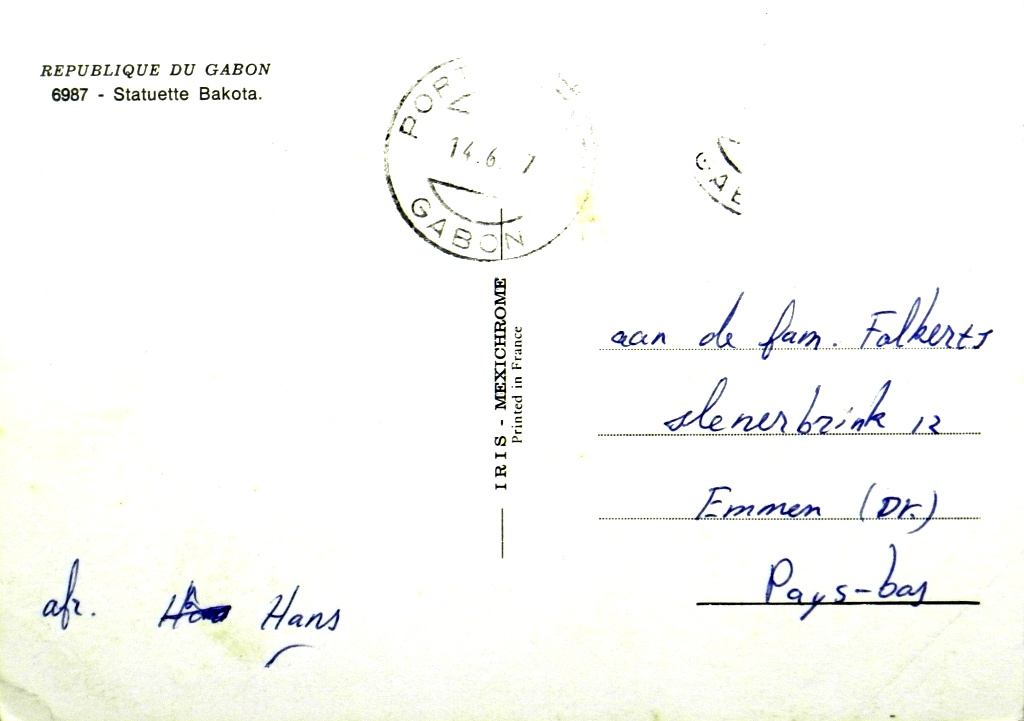 REPUBLIQUE DU GABON
6987 - Statuette Bakota.
PORT
14.6. 7
GABON
GAB
IRIS - MEXICHROME
Printed in France
aan de fam. Folkerts
slenerbrink 12
Emmen (Dr.)
Pays-bas
afz. Hans